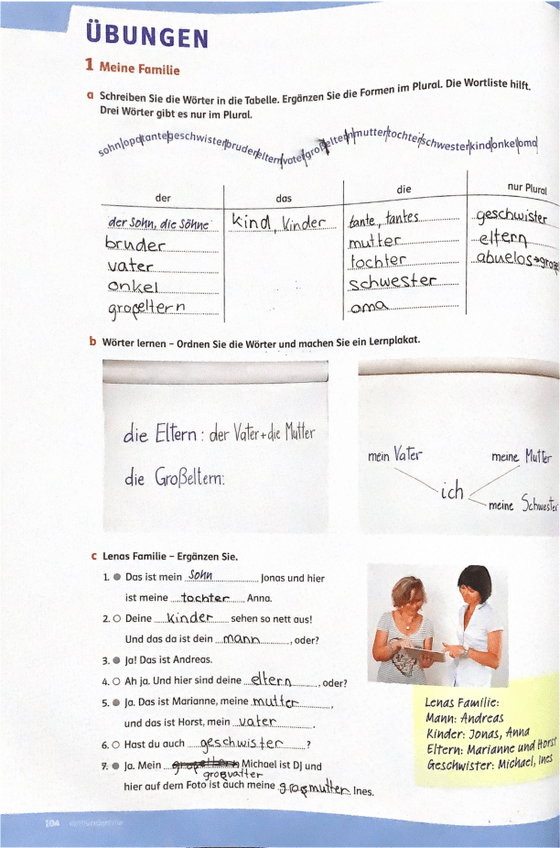 ÜBUNGEN
1 Meine Familie
a Schreiben Sie die Wörter in die Tabelle. Ergänzen Sie die Formen im Plural. Die Wortliste hilft.
Drei Wörter gibt es nur im Plural.
sohn|opa|tante|geschwister|bruder|eltern|vater|großeltern|mutter|tochter|schwester|kind|onkel|oma|
der das die nur Plural
der Sohn, die Söhne kind, kinder tante, tantes geschwister
bruder mutter eltern
vater tochter abuelos→
onkel schwester
großeltern oma
b Wörter lernen – Ordnen Sie die Wörter und machen Sie ein Lernplakat.
die Eltern: der Vater+die Mutter
die Großeltern:
mein Vater meine Mutter
ich
meine Schwester
c Lenas Familie – Ergänzen Sie.
1. ● Das ist mein sohn Jonas und hier
ist meine tochter Anna.
2. ○ Deine kinder sehen so nett aus!
Und das da ist dein mann, oder?
3. ● Ja! Das ist Andreas.
4. ○ Ah ja. Und hier sind deine eltern, oder?
5. ● Ja. Das ist Marianne, meine mutter,
und das ist Horst, mein vater.
6. ○ Hast du auch geschwister?
7. ● Ja. Mein Michael ist DJ und
großvatter
hier auf dem Foto ist auch meine großmutter Ines.
Lenas Familie:
Mann: Andreas
Kinder: Jonas, Anna
Eltern: Marianne und Horst
Geschwister: Michael, Ines
104